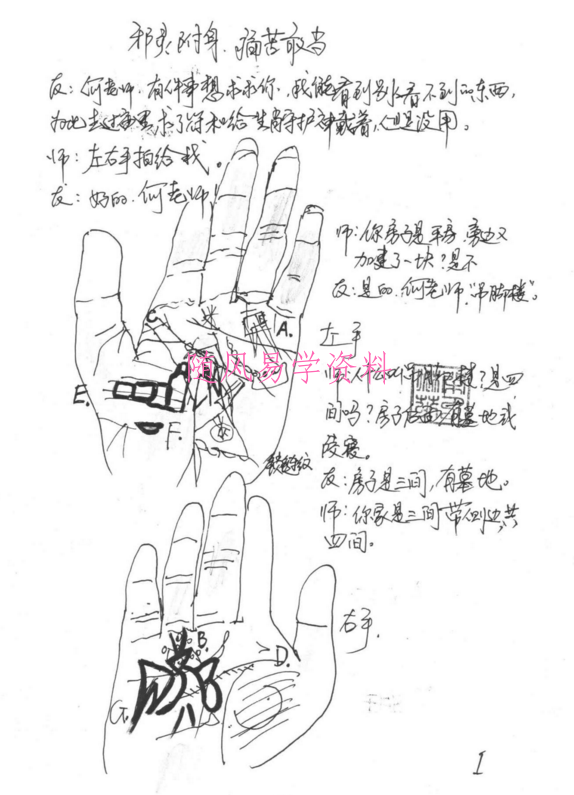 邪灵附身、痛苦敢当
友：何老师，有件事想求求你，我能看到别人看不到的东西，
为此去过 求了符和给 护神戴着，但是没用。
师：左右手拍给我。
友：好的，何老师！
师：你房子是平房，旁边又
加建了一块？是不
友：是的，何老师，“吊脚楼”。
C
A.
左手
随风易学资料
？是四
E.
F.
间吗？房子 有墓地或
陵寝。
友：房子是三间，有墓地。
师：你家是三间带侧边共
四间。
B
右手.
D.
G
1